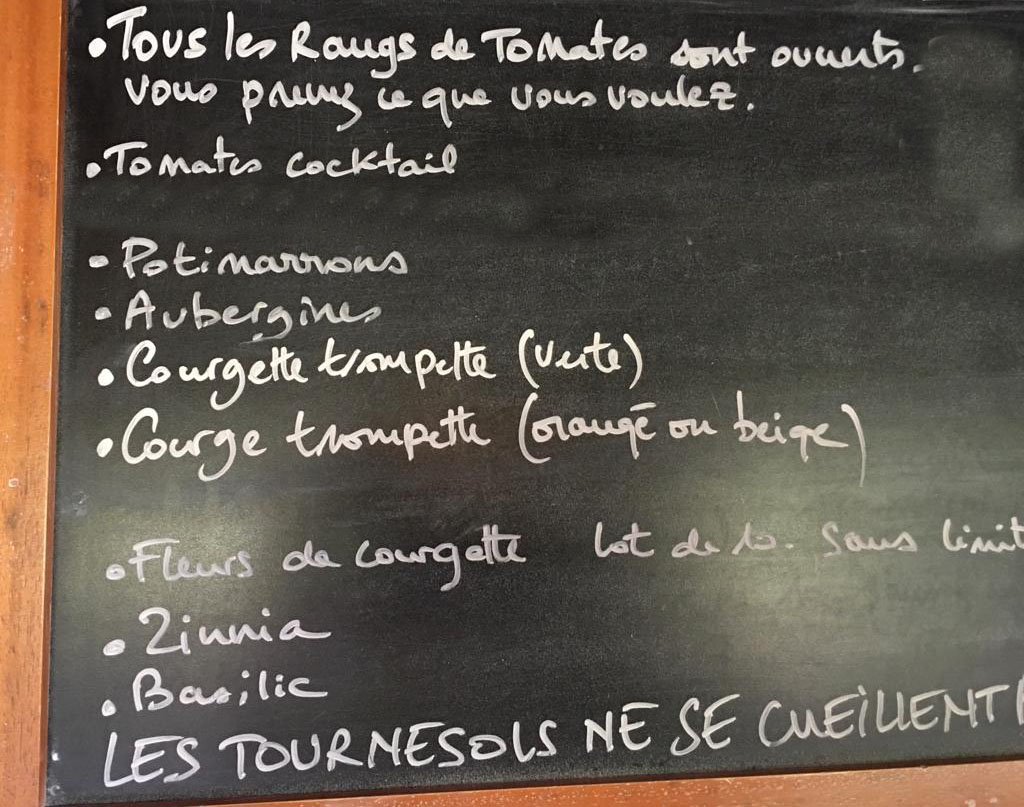 • Tous les Rangs de Tomates sont ouverts.
vous prenez ce que vous voulez.
• Tomates cocktail
• Potimarrons
• Aubergines
• Courgette trompette (verte)
• Courge trompette (orangé ou beige)
• Fleurs de courgette lot de 10. Sans limit
• Zinnia
• Basilic
LES TOURNESOLS NE SE CUEILLENT